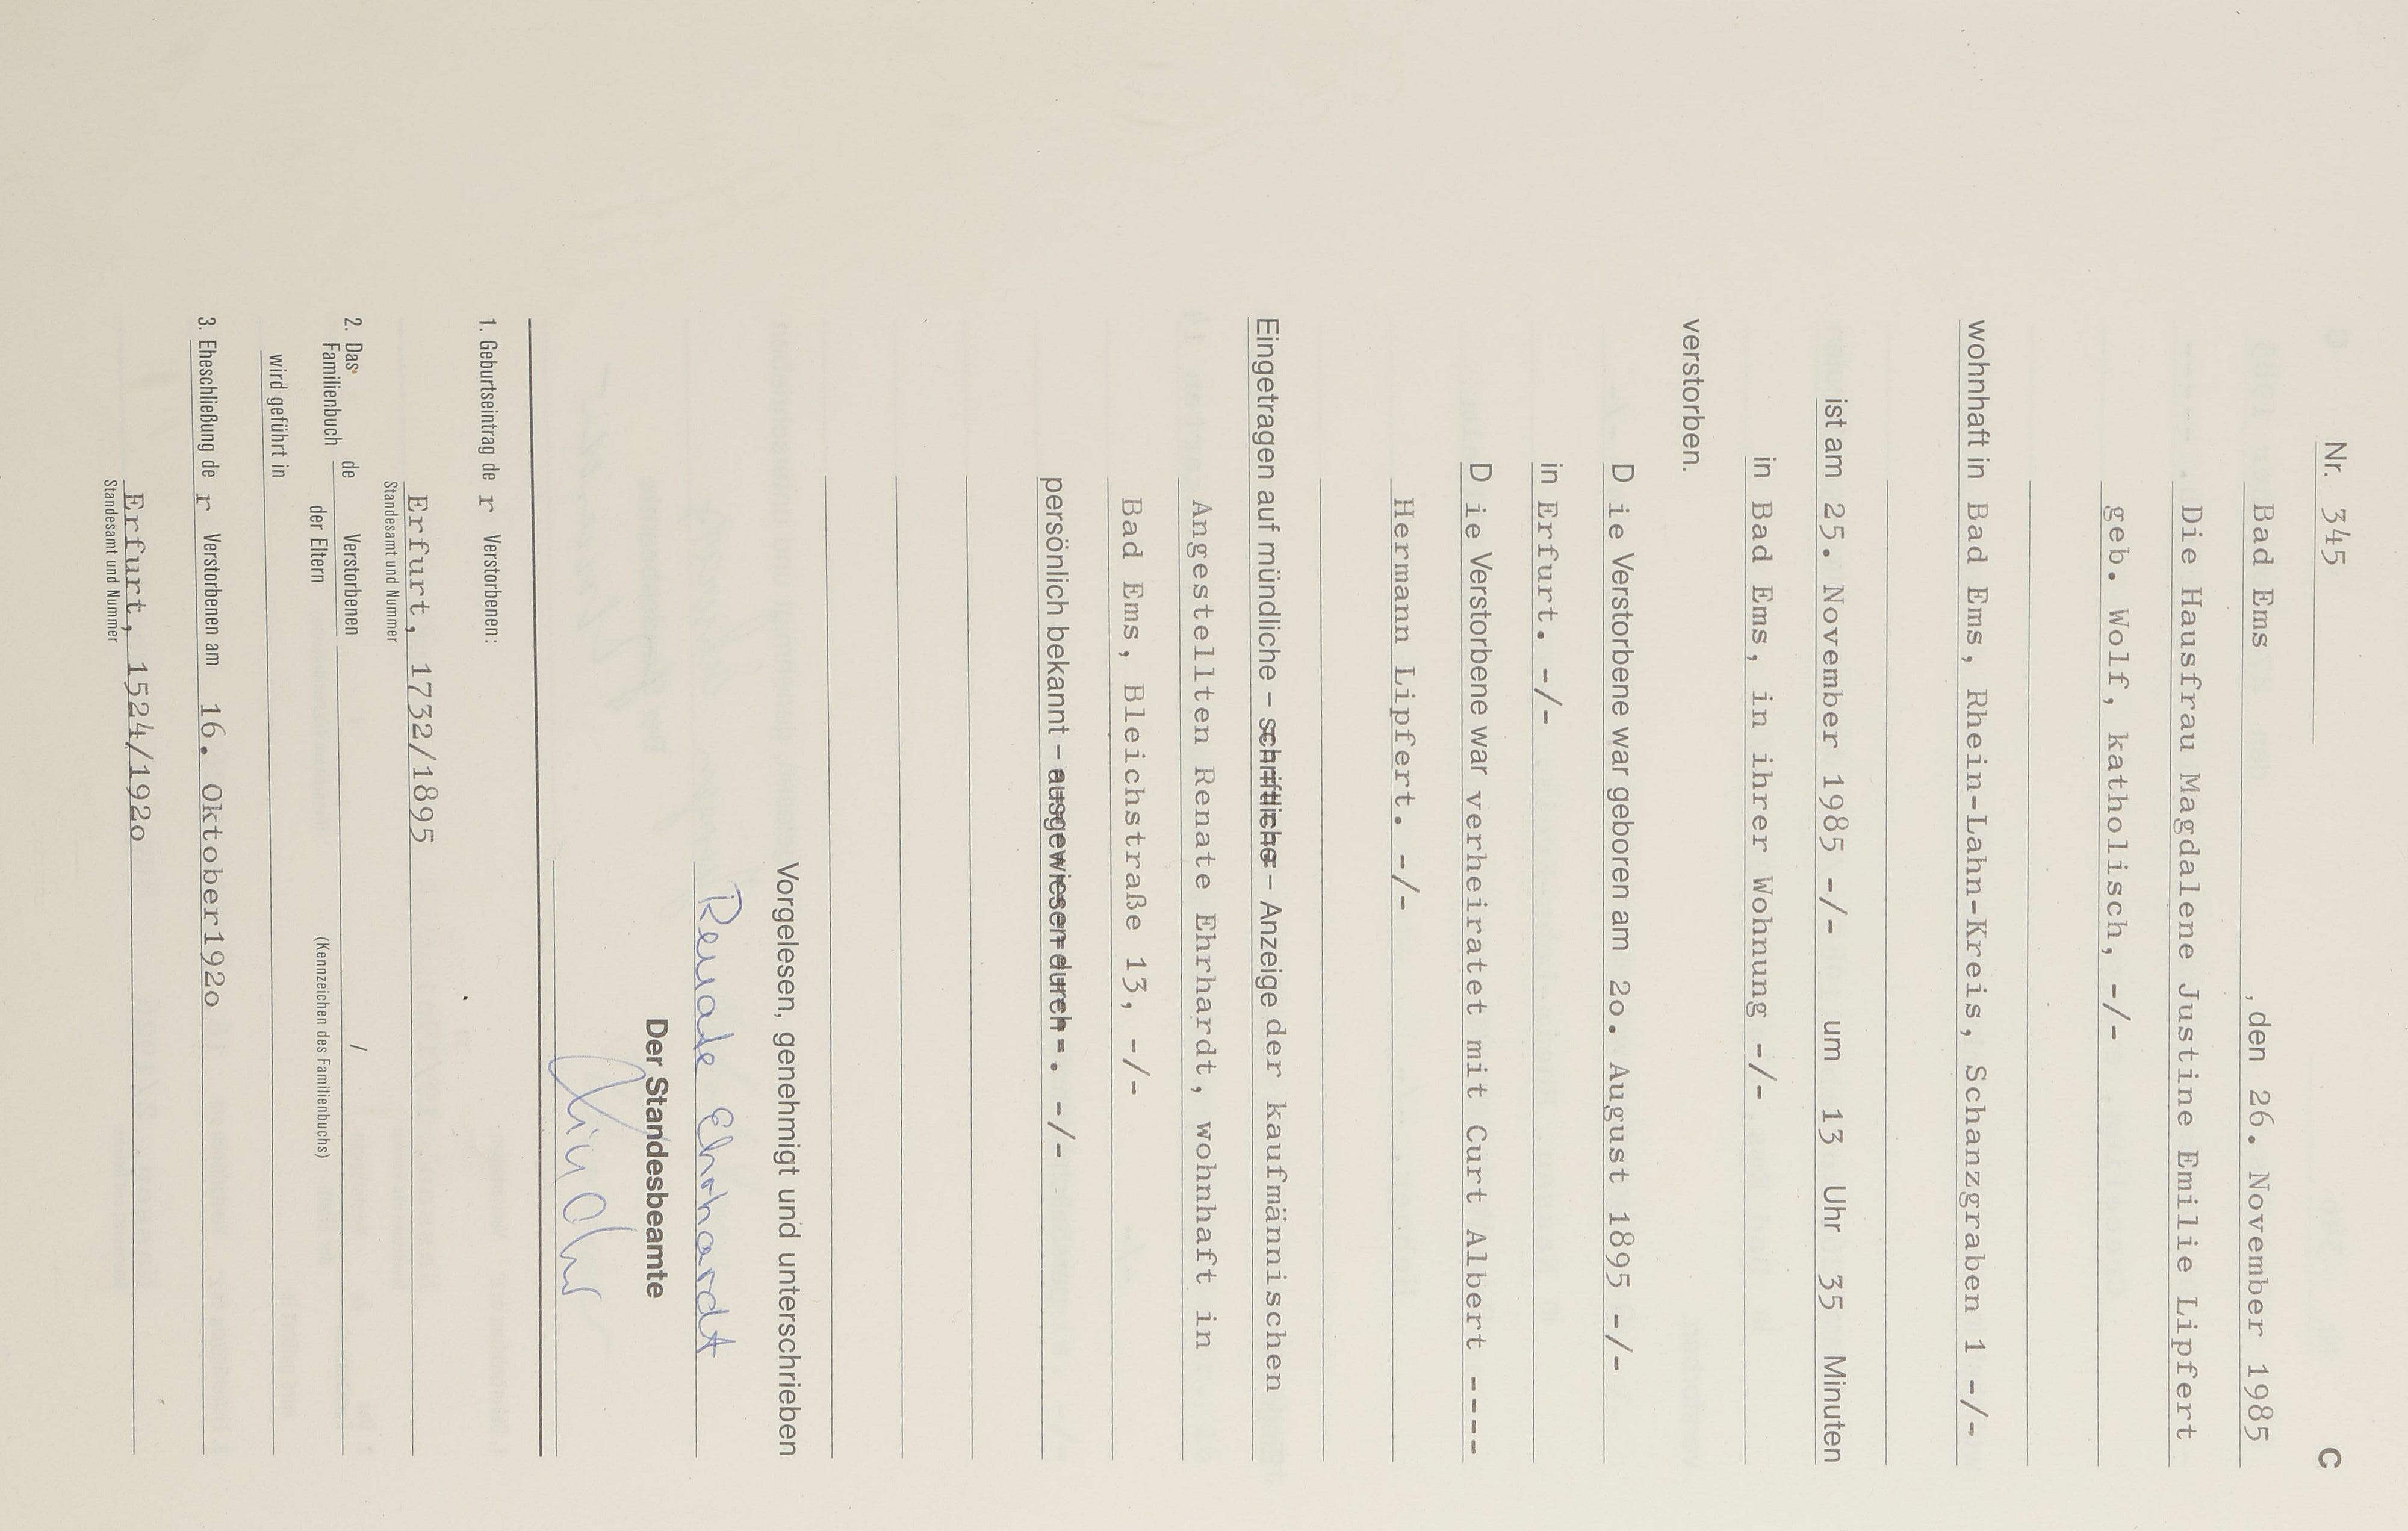 C
Nr. 345
Bad Ems , den 26. November 1985
Die Hausfrau Magdalene Justine Emilie Lipfert
geb. Wolf, katholisch, -/-
wohnhaft in Bad Ems, Rhein-Lahn-Kreis, Schanzgraben 1 -/-
ist am 25. November 1985 -/- um 13 Uhr 35 Minuten
in Bad Ems, in ihrer Wohnung -/-
verstorben.
D ie Verstorbene war geboren am 2o. August 1895 -/-
in Erfurt. -/-
D ie Verstorbene war verheiratet mit Curt Albert ----
Hermann Lipfert. -/-
Eingetragen auf mündliche – schriftliche – Anzeige der kaufmännischen
Angestellten Renate Ehrhardt, wohnhaft in
Bad Ems, Bleichstraße 13, -/-
persönlich bekannt – ausgewiesen durch =. -/-
Vorgelesen, genehmigt und unterschrieben
Renate Ehrhardt
Der Standesbeamte
1. Geburtseintrag de r Verstorbenen:
Erfurt, 1732/1895
Standesamt und Nummer
2. Das Familienbuch de Verstorbenen /
der Eltern (Kennzeichen des Familienbuchs)
wird geführt in
3. Eheschließung de r Verstorbenen am 16. Oktober192o
Erfurt, 1524/192o
Standesamt und Nummer